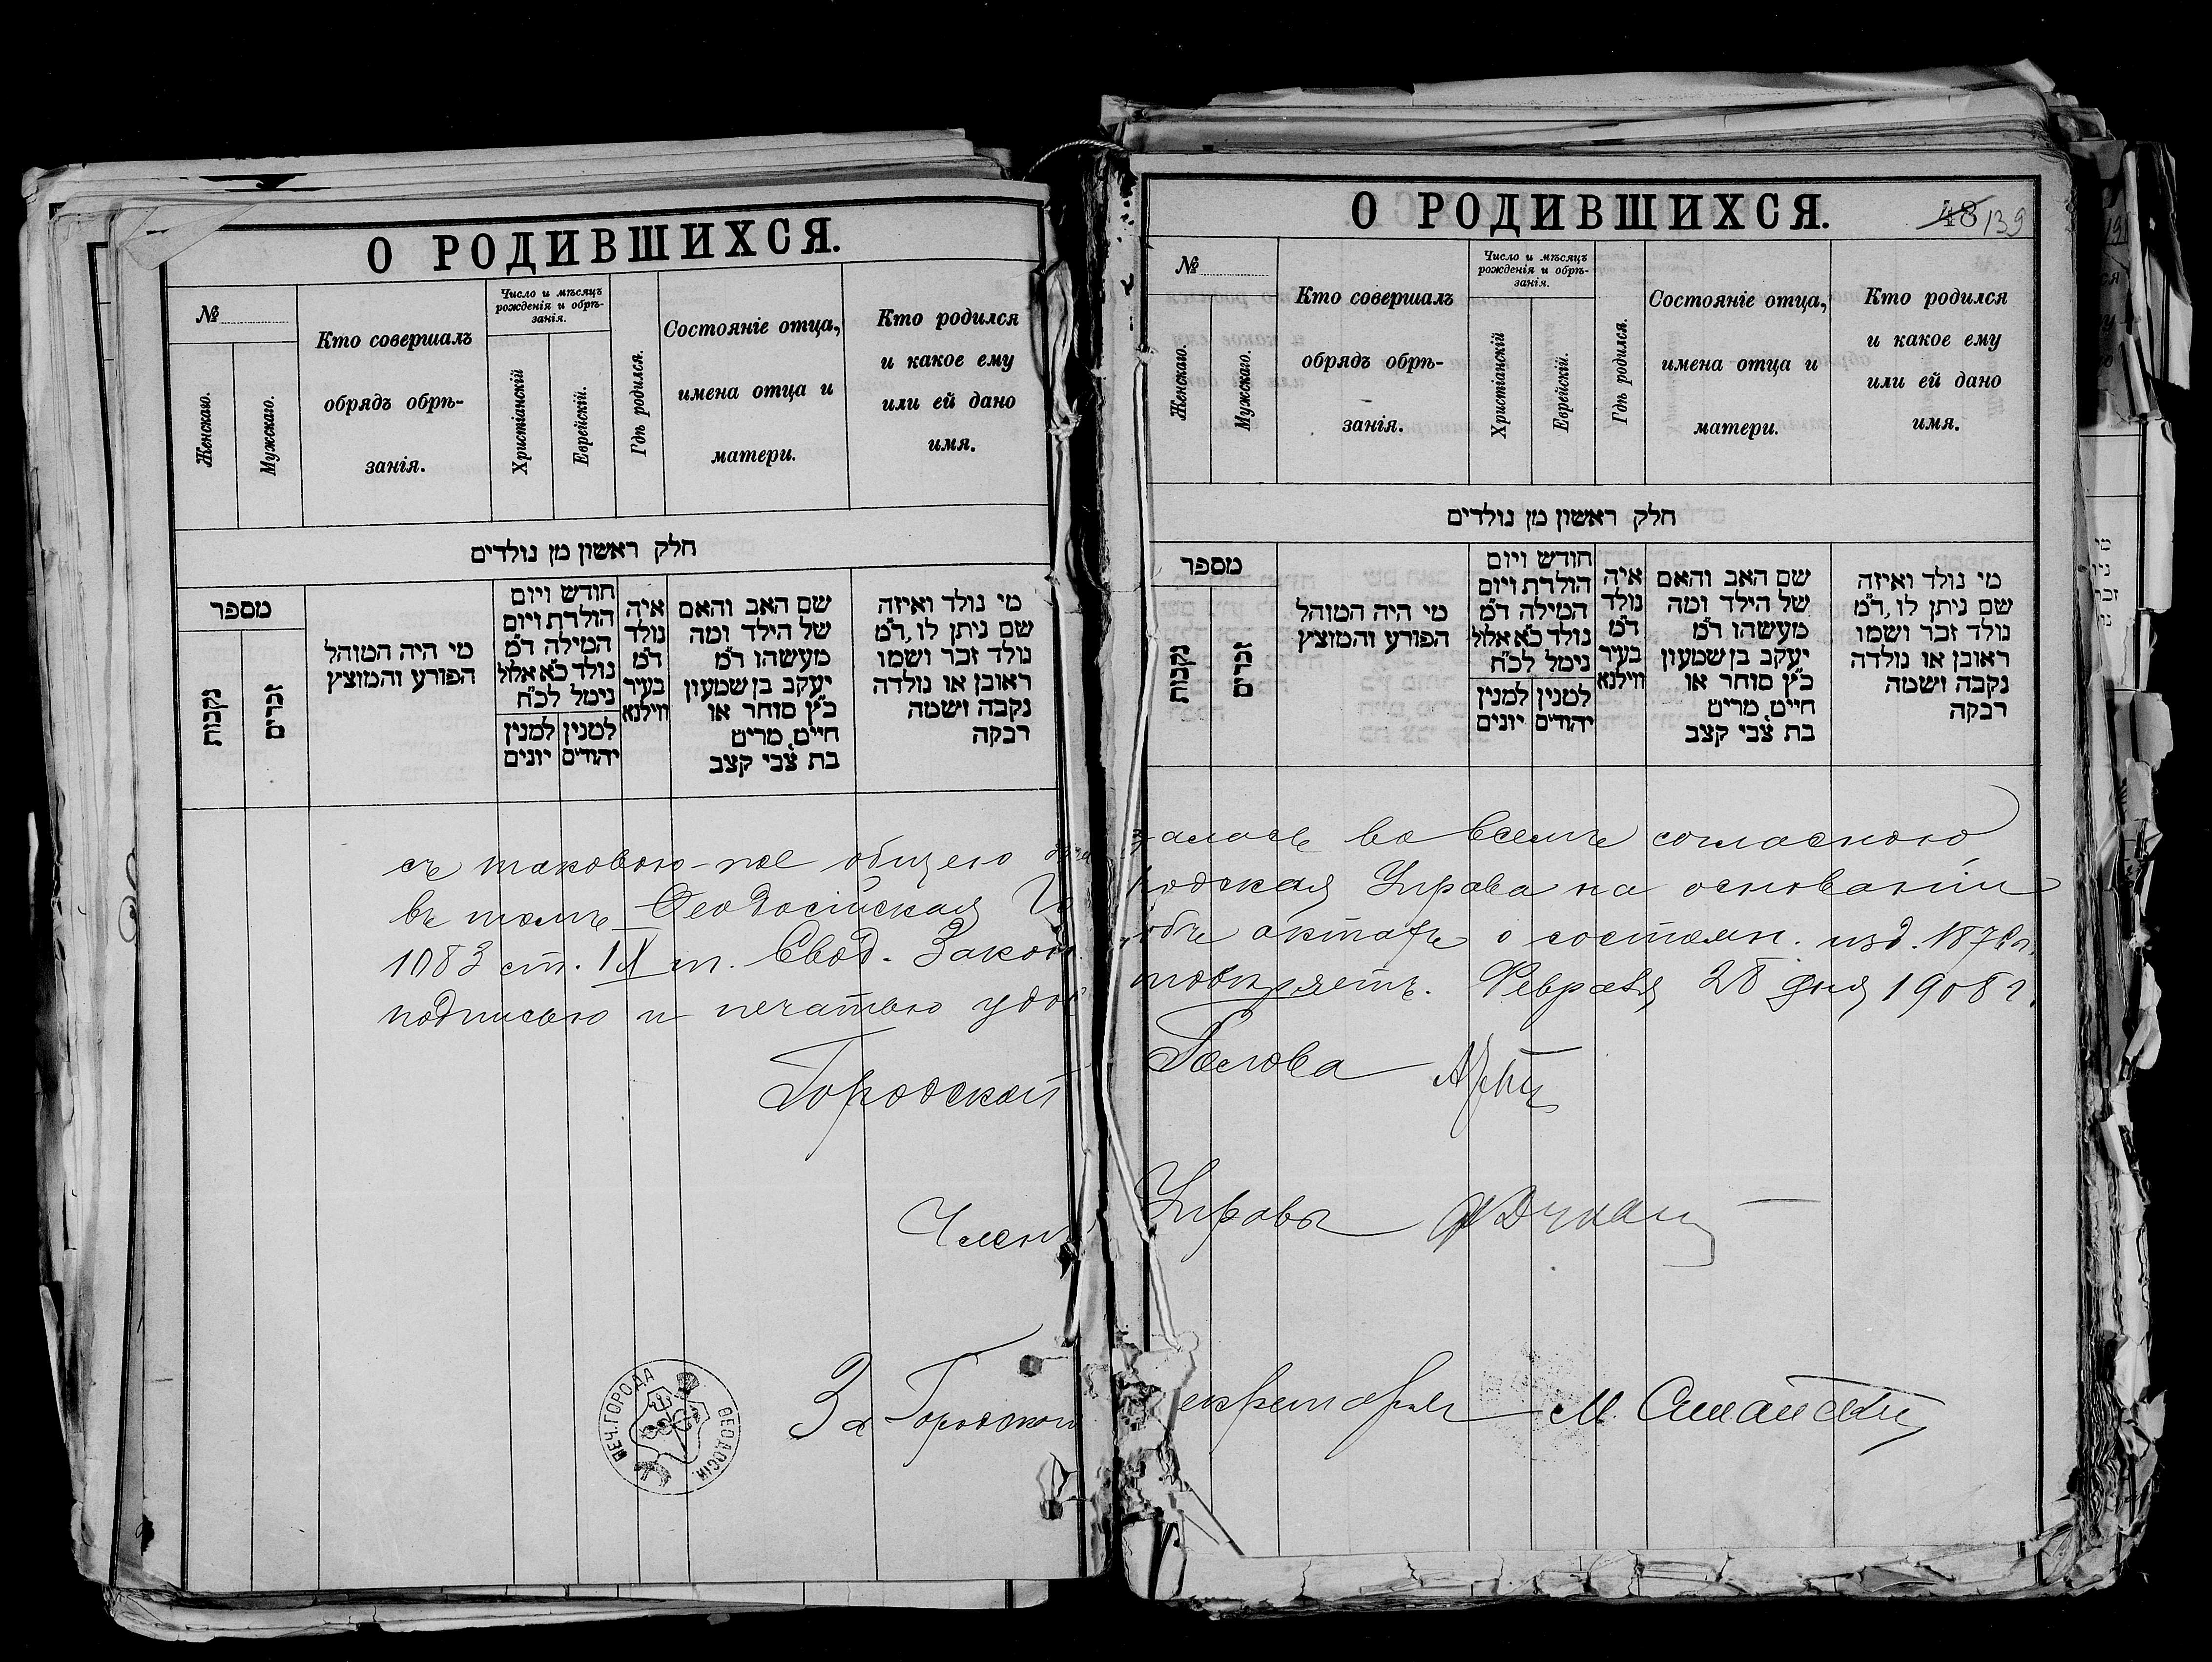 О РОДИВШИХСЯ.
№
Женскаго.
Мужскаго.
Кто совершалъ
обрядъ обрѣ-
занія.
Число и мѣсяцъ
рожденія и обрѣ-
занія.
Христіанскій
Еврейскій.
Гдѣ родился.
Состояніе отца,
имена отца и
матери.
Кто родился
и какое ему
или ей дано
имя.
חלק ראשון מן נולדים
מספר
נקבות
זכרים
מי היה המוהל
הפורע והמוצץ
חודש ויום
הולדת ויום
המילה ד"מ
נולד כ"א אלול
נימל לכ"ח
למנין יונים
למנין יהודים
איה
נולד
ד"מ
בעיר
ווילנא
שם האב והאם
של הילד ומה
מעשהו ד"מ
יעקב בן שמעון
כ"ץ סוחר או
חייט, מרים
בת צבי קצב
מי נולד ואיזה
שם ניתן לו, ד"מ
נולד זכר ושמו
ראובן או נולדה
נקבה ושמה
רבקה
съ таковою-же общею
въ томъ Ѳеодосійская Го
1083 ст. IX т. Свод. Закон
подписью и печатью удос
Городской
Член
За Городского
ПЕЧ. ГОРОДА ѲЕОДОСІИ
О РОДИВШИХСЯ.
48 139
№
Женскаго.
Мужскаго.
Кто совершалъ
обрядъ обрѣ-
занія.
Число и мѣсяцъ
рожденія и обрѣ-
занія.
Христіанскій
Еврейскій.
Гдѣ родился.
Состояніе отца,
имена отца и
матери.
Кто родился
и какое ему
или ей дано
имя.
חלק ראשון מן נולדים
מספר
נקבות
זכרים
מי היה המוהל
הפורע והמוצץ
חודש ויום
הולדת ויום
המילה ד"מ
נולד כ"א אלול
נימל לכ"ח
למנין יונים
למנין יהודים
איה
נולד
ד"מ
בעיר
ווילנא
שם האב והאם
של הילד ומה
מעשהו ד"מ
יעקב בן שמעון
כ"ץ סוחר או
חייט, מרים
בת צבי קצב
מי נולד ואיזה
שם ניתן לו, ד"מ
נולד זכר ושמו
ראובן או נולדה
נקבה ושמה
רבקה
залось во всемъ согласною
родская Управа на основаніи
объ актахъ о состоян. изд.
товѣряетъ. Февраля 28 дня 1908 г.
Голова
Управы
екретаря М.